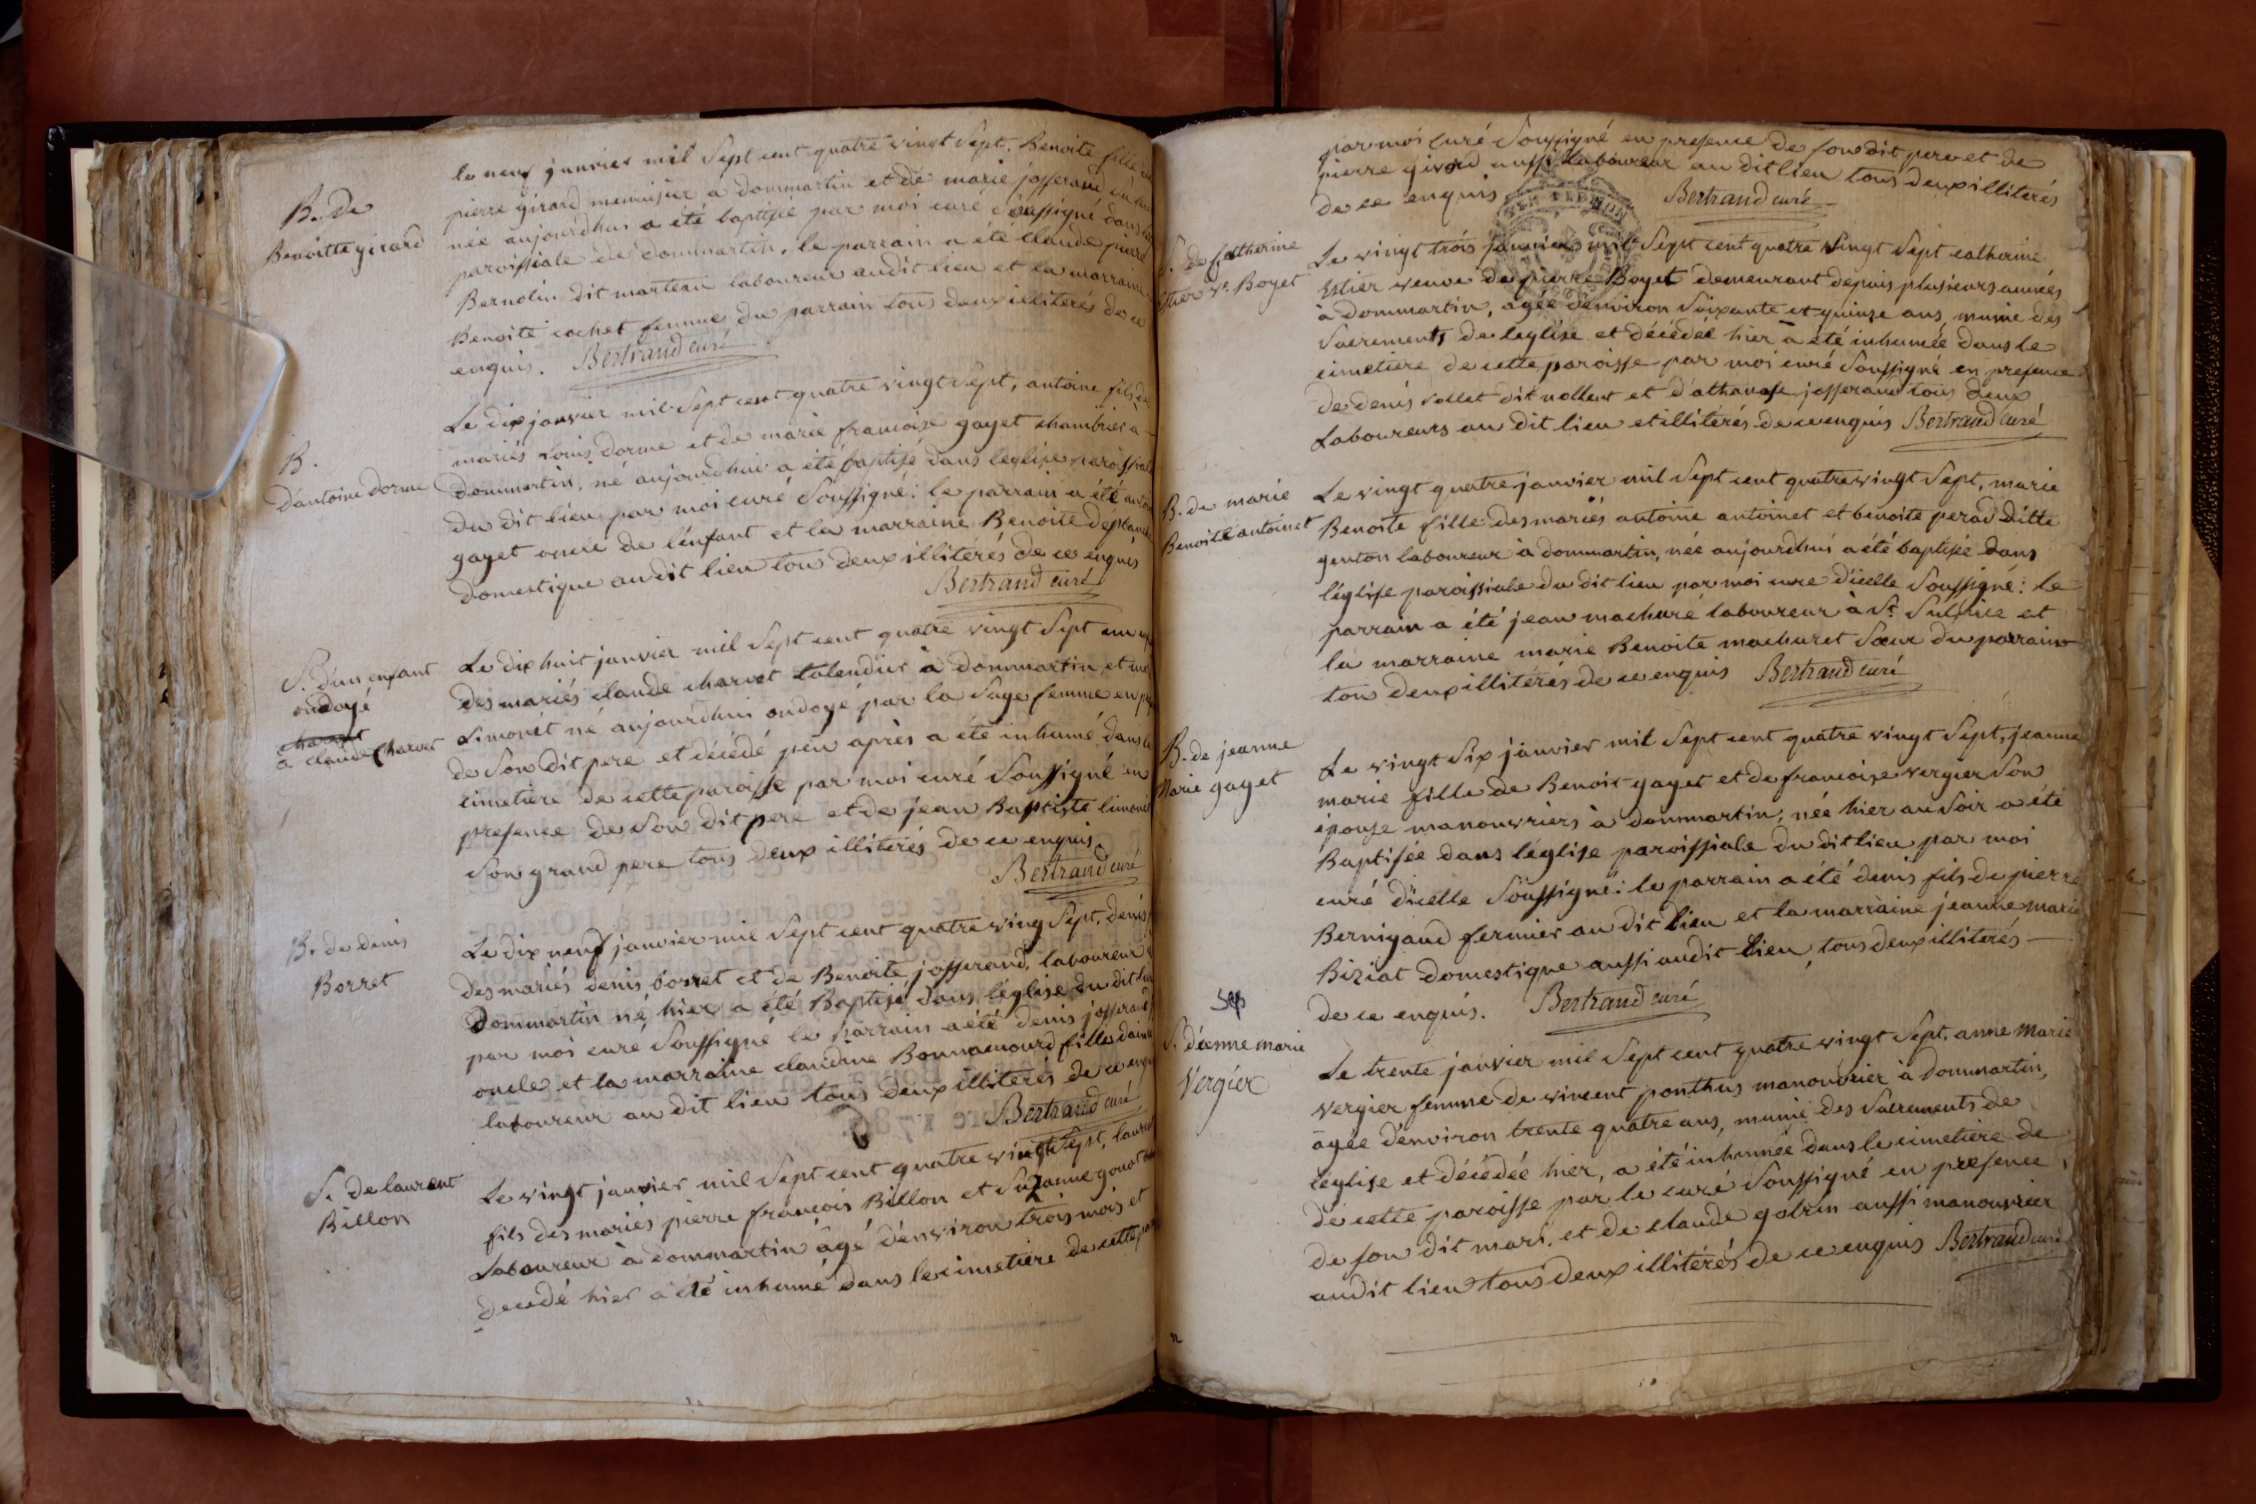 B. de
Benoitte girard
le neuf janvier mil Sept cent quatre vingt Sept, Benoite fille
pierre girard menuisier a dommartin et de marie josserand
née aujourdhui a été baptisée par moi curé soussigné dans
paroissiale de dommartin, le parrain a été Claude pierre
Bernolin dit marteau laboureur audit lieu et la marraine
Benoite cochet femme du parrain tous deux illiterés de ce
enquis. Bertrand curé
B.
d'antoine dorme
Le dix janvier mil Sept cent quatre vingt Sept, antoine fils
mariés Louis dorme et de marie francoise gayet chambrier a
dommartin, né aujourdhui a été baptisé dans leglise paroissiale
du dit lieu par moi curé Soussigné: le parrain a été
gayet oncle de lénfant et la marraine Benoite
domestique audit lieu tous deux illitérés de ce enquis
Bertrand curé
S. dun enfant
ondoyé
charvet
a claude Charvet
Le dix huit janvier mil Sept cent quatre vingt Sept un
des mariés claude charvet talendier à dommartin et
Limonét né aujourdhui ondoyé par la Sage femme en
de Son dit pere et décédé peu après a été inhumé dans
cimetiere de cette paroisse par moi curé Soussigné en
presence de Son dit pere et de jean Baptiste limonet
Son grand pere tous deux illiterés de ce enquis
Bertrand curé
B. de denis
Borret
Le dix neuf janvier mil Sept cent quatre ving Sept, denis
des mariés denis borret et de Benoite josserand, laboureur
Dommartin né hier a été Baptisé dans léglise du dit lieu
par moi curé Soussigné le parrain a été denis josserand
oncle et la marraine claudine Bonnamourd fille
laboureur au dit lieu tous deux illiterés de ce
Bertrand curé
S. de laurent
Billon
Le vingt janvier mil Sept cent quatre vingt Sept, laurent
fils des mariés pierre françois Billon et Suzanne
Laboureur à dommartin âgé dénviron trois mois et
decedé hier a été inhumé dans le cimetiere de cette
par moi Curé Soussigné en presence de son dit pere et de
pierre girard aussi laboureur au dit lieu tous deux illiterés
de ce enquis Bertrand curé
S. de Catherine
Estier Ve Boyet
Le vingt trois janvier mil Sept cent quatre vingt Sept catherine
Estier veuve de pierre Boyet demeurant depuis plusieurs années
à dommartin, agée dénviron Soixante et quinze ans, munie des
Sacrements de leglise et décédée hier a été inhumée dans le
cimetiere de cette paroisse par moi curé Soussigné en presence
de denis vollet dit nollent et d'athanase josserand tous deux
Laboureurs au dit lieu et illitérés de ce enquis Bertrand curé
B. de marie
Benoite antoinet
Le vingt quatre janvier mil Sept cent quatre vingt Sept, marie
Benoite fille des mariés antoine antoinet et benoite perad ditte
genton laboureur à dommartin, née aujourdhui a été baptisée dans
léglise paroissiale du dit lieu par moi curé dicelle Soussigné: le
parrain a été jean machuré laboureur à St Sulpice et
la marraine marie Benoite machuret Sœur du parrain
tous deux illitérés de ce enquis Bertrand curé
B. de jeanne
Marie gayet
Le vingt Six janvier mil Sept cent quatre vingt Sept, jeanne
marie fille de Benoit gayet et de francoise vergier Son
épouse manouvriers à dommartin, née hier au Soir a été
Baptisée dans léglise paroissiale du dit lieu par moi
curé dicelle Soussigné: le parrain a été denis fils de pierre
Bernigaud fermier au dit lieu et la marraine jeanne marie
Biziat domestique aussi audit lieu, tous deux illiterés
de ce enquis. Bertrand curé
Sep
S. d'anne marie
Vergier
Le trente janvier mil Sept cent quatre vingt Sept, anne Marie
vergier femme de vincent ponthus manouvrier à Dommartin,
agée dénviron trente quatre ans, munie des Sacrements de
léglise et décédée hier, a été inhumée dans le cimetiere de
de cette paroisse par le curé Soussigné en presence
de son dit mari, et de claude golrin aussi manouvrier
audit lieu tous deux illitérés de ce enquis Bertrand curé